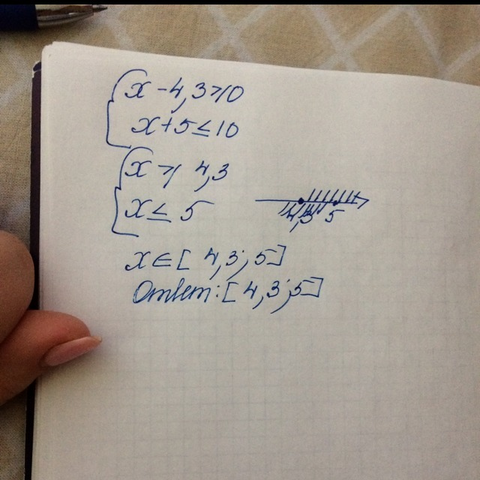 x - 4,3 ≥ 0
x + 5 ≤ 10
x ≥ 4,3
x ≤ 5
4,3 5
x ∈ [ 4,3 ; 5]
Ответ: [ 4,3 ; 5]